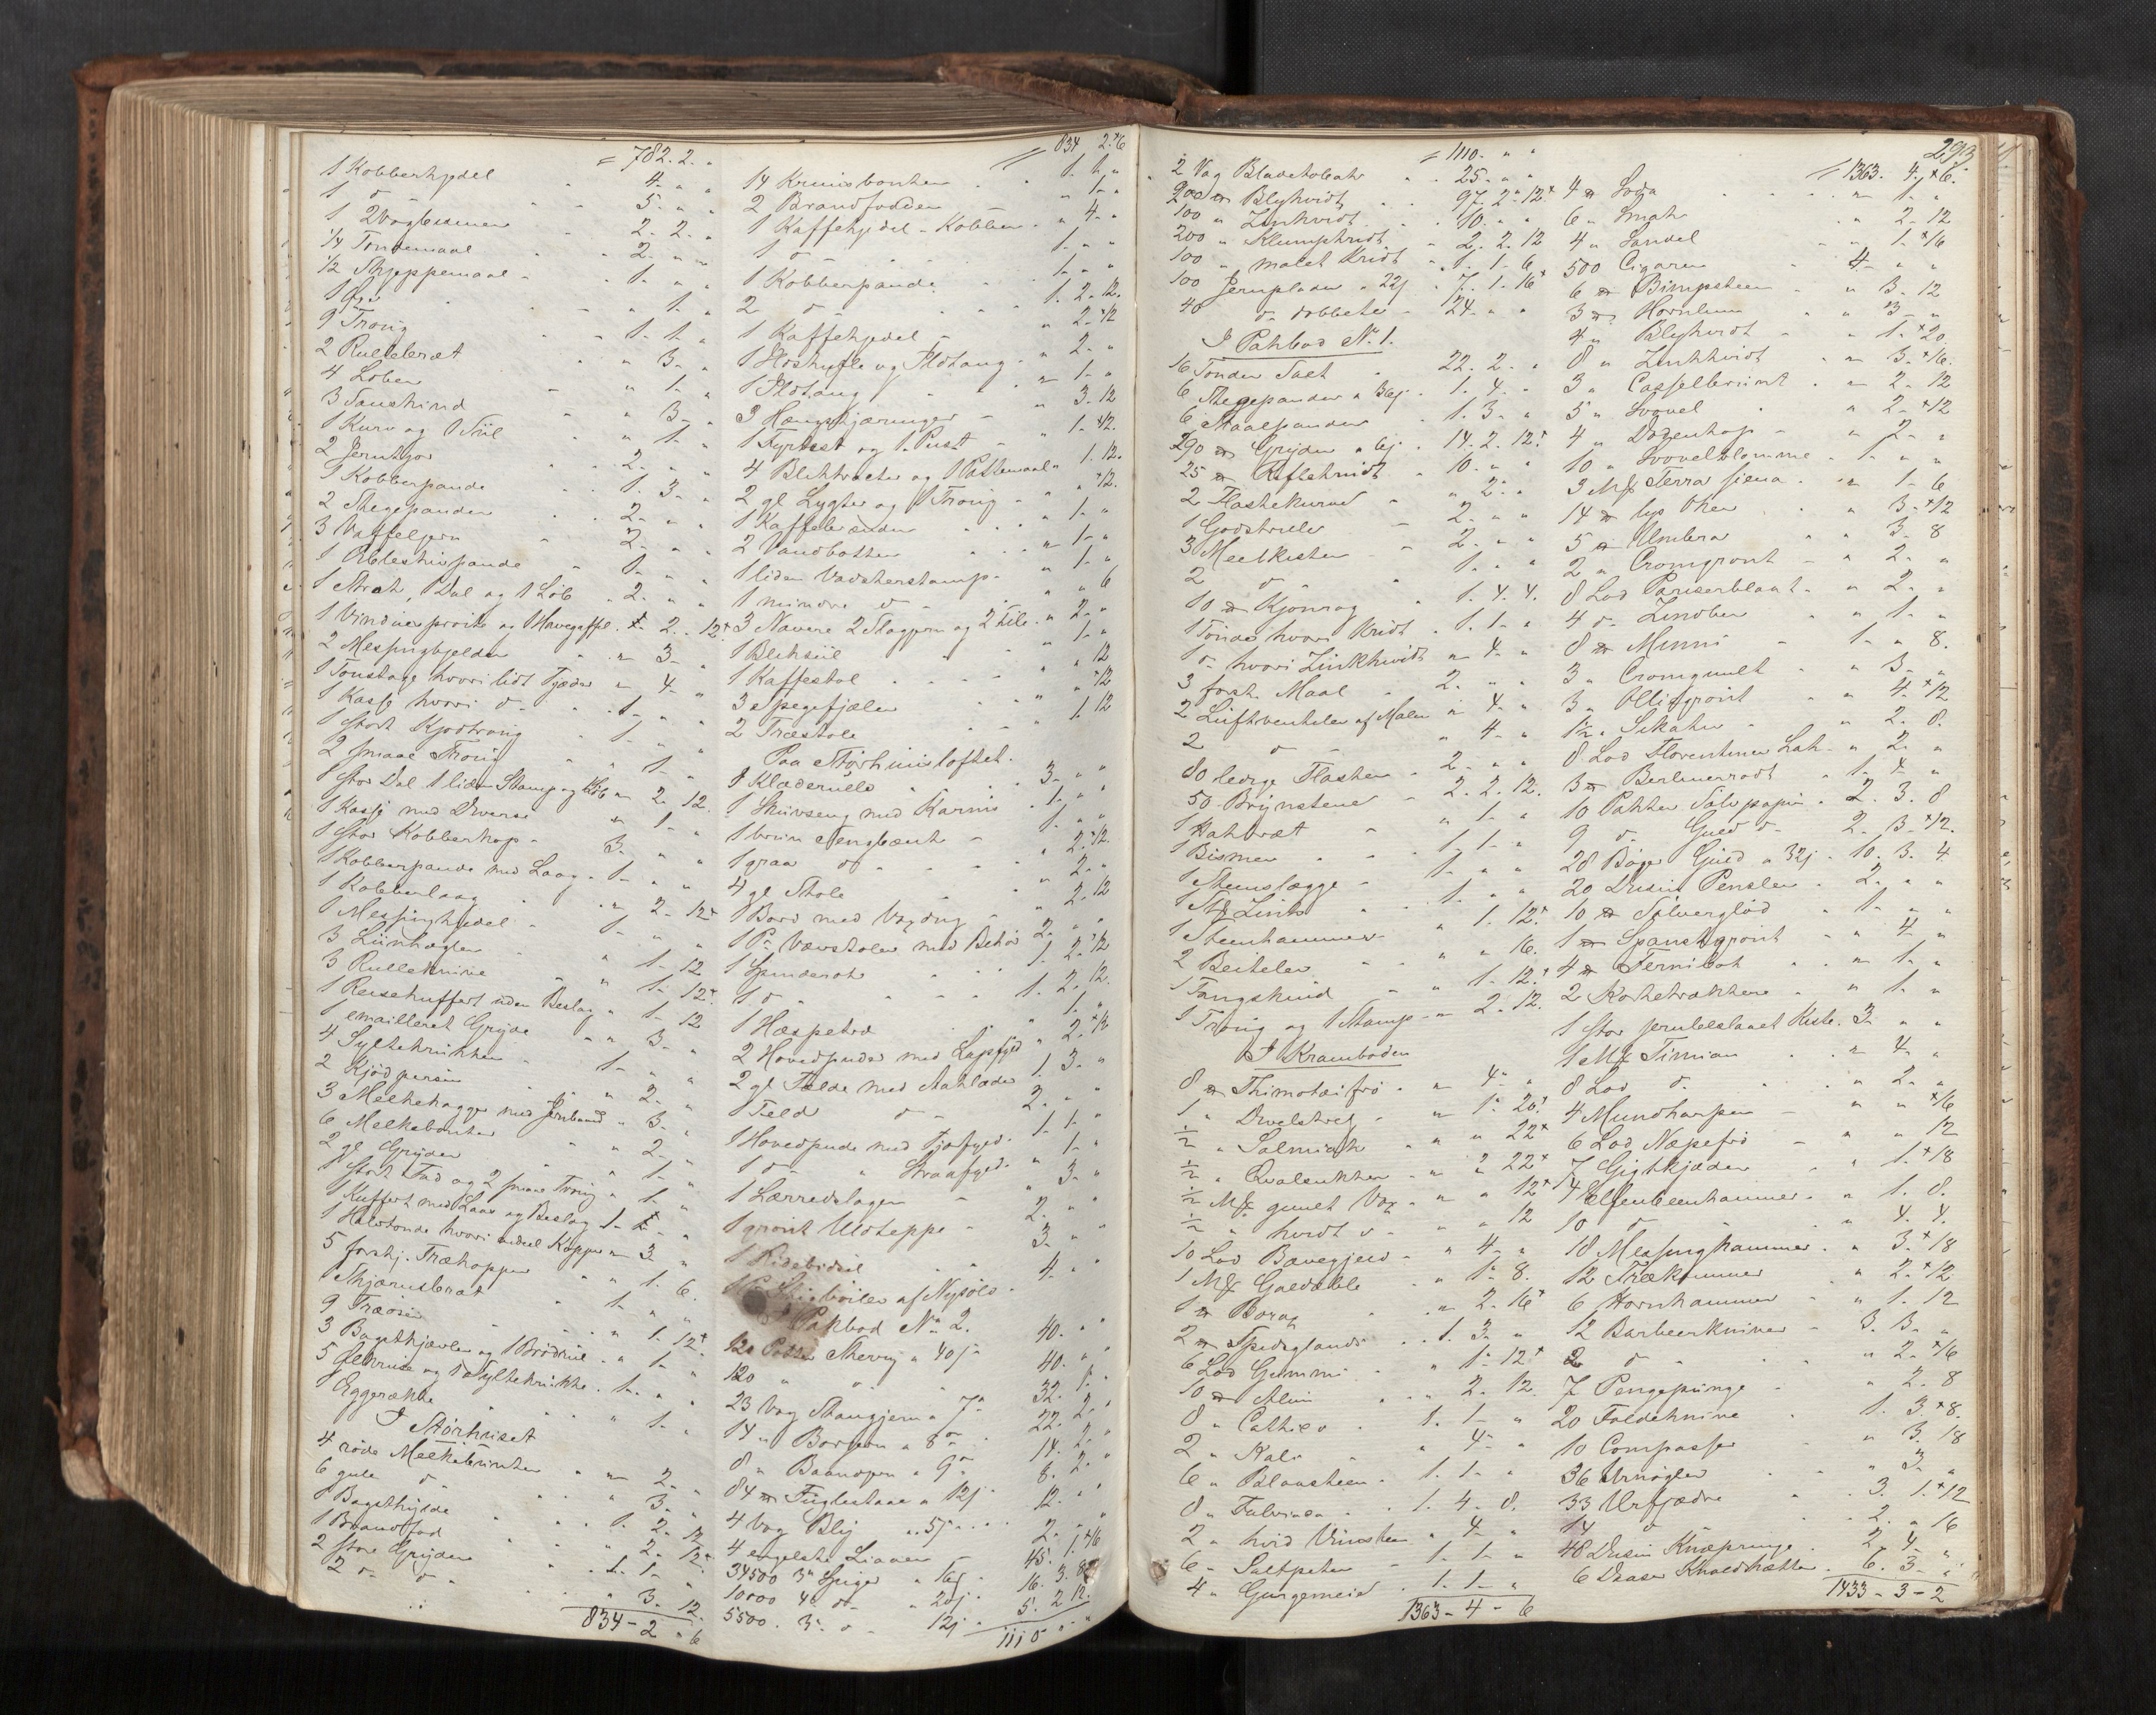 = 782. 2. "
1 Kobberkjedel " 4. " "
1 d° " 5. " "
1 2Vogbismer 2. 2. "
1/4 Tøndemaal 2. " "
1/2 Skjeppemaal 1. " "
1 Øxe " 1. "
9 Troug 1. 1. "
2 Rullebræt " 3. "
4 Løber " 1. "
3 Saueskind " 3. "
1 Kurv og 1 Siil " 1. "
2 Jerntyer 2. " "
1 Kobberpande 1. 3. "
2 Stegepander 2. " "
3 Vaffeljern 2. " "
1 Ableskivpande 1. " "
1 Strek, 1 Dal og 1 Løb 2. " "
1 Vinduesprøite og 1 Havegaffel 2. 12
2 Messingkjelder " 3. "
1 Tønstage hvori lidt Tjære " 4. "
1 Kasse hvori d° 1. " "
1 stort Kjødtroug 1. " "
2 smaae Troug " 1. "
1 stor Dal 1 liden Stamp og 1 Løb " 2. 12
1 Kasse med Diverse " 1. "
1 stor Kobberkop 3. " "
1 Kobberpande med Laag 1. " "
1 Kobberlaag " 2. 12
1 Messingkjedel 1. " "
3 Liinhegler " 1. 12
3 Rulleknive " 1. 12
1 Reisekuffert uden Beslag " 1. 12
1 emailleret Gryde " 3. "
4 Syltekrukker 1. " "
2 Kjødperser " 2. "
3 Melkebøgger med Jernbaand " 3. "
6 Melkebønter " 2. "
2 gl Gryder " 1. "
1 stort Fad og 2 smaae Troug " 1. "
1 Kuffert med Laas og Beslag 1. "
1 Halvtønde hvori endeel Kopper " 3. "
5 forskj. Trækopper " 1. 6.
1 Skjærusbræt " 1. "
9 Træøser " 1. 12
3 Bagstkjævler og 1 Brødriil " 1. "
5 Glkrus og 1 Syltekrukke 1. " "
1 Eggerække " 1. "
I Størhuset
4 røde Melkebønter " 2. "
6 gule d° " 3. "
1 Bagsthylde 1. 2. 12
1 Brandfad " 2. 12
2 store Gryder 1. 1. "
2 d° d° " 3. 12
834 - 2 " 6
= 834 2. 6
14 Kruusbønker 1. 1. "
2 Brandfødder " 1. "
1 Kaffekjedel - Kobber " 4. "
1 d° 1. " "
1 Kobberpande 1. " "
2 d° 1. 2. 12.
1 Kaffekjedel " 2. 12
1 Ildskuffe og Ildtang " 2. "
1 Ildtang " 1. "
3 Hængskjæringer " 3. 12
1 Fyrtøet og 1 Pust " 1. 12.
4 Bliktragter og 1 Pottemaal " 1. 12.
2 gl Lygter og 1 Troug " " 12.
1 Kaffebrænder " 1. "
2 Vandbøtter " 1. "
1 liden Vadskerstamp " 1. "
1 mindre d° " " 6
3 Navere 2 Slagjern og 2 File " 2. "
1 Bliksiil " 1. "
1 Kaffestol " " 12
3 Spegefjæler " " 12
2 Træstole " 1. 12
Paa Størhuusloftet.
1 Klæderulle 3. " "
1 Skuvseng med Karnis 1. " "
1 bruun Sengbænk 1. " "
1 graa d° " 2. 12.
4 gl Stole " 2. "
1 Bord med Voxdug " 2. 12
1 Pr Vævstoler med Behør 2. " "
1 Spinderok 1. 2. 12
1 d° 1. 2. 12.
1 Hæspetræ " 1. "
2 Hovedpuder med Lapfyld " 2. 12
2 gl Felde med Aaklæder 1. 3. "
1 Feld d° 2. " "
1 Hovedpude med Fjærfyld 1. 1. "
1 d° " Straafyld " 1. "
1 Lærredslagen " 3. "
1 grønt Uldteppe 2. " "
1 Ridebidsel 3. " "
1 Pr Stigbøiler af Nysølv 4. " "
I Pakbod No 2.
120 Potter Sherry a 40s 40. " "
120 " d° 40. " "
23 Vog Stangjern a 7o 32. 1. "
14 " Borjern a 8o 22. 2. "
8 " Baandjern a 9o 14. 2. "
84 # Fuglestaal a 12s 8. 2. "
4 Vog Bly " 57s 12. " "
4 engelske Liaaer 2. " "
34500 3" Spiger a 16s 45. 1. 16
10000 4" d° a 20s 16. 3. 8
5500 3" d° 12s 5. 2. 12.
1110 " "
293
= 1110. " "
2 Vog Bladetobak 25. " "
200 # Blyhvidt 97. 2. 12
100 " Zinkhvidt 10. " "
200 " Klumpkridt 2. 2. 12
100 " malet Kridt 1. 1. 6
100 Jernplader a 22s 7. 1. 16
40 d° dobbelte 24. " "
I Pakbod No. 1.
16 Tønder Salt 22. 2. "
6 Stegepander a 36s 1. 4. "
6 Staalpander 1. 3. "
290 # Gryder a 6s 14. 2. 12
25 # Riflekrudt 10. " "
2 Flaskekurve " 2. "
1 Godstrille 2. " "
3 Meelkister 2. " "
2 d° 1. " "
10 # Kjønrøg 1. 4. 4.
1 Tønde hvori Kridt 1. 1. "
1 d° hvori Zinkhvidt " 4. "
3 forsk. Maal 2. " "
2 Luftventiler af Malm " 4. "
2 d° " 4. "
80 ledige Flasker 2. " "
50 Brynstene 2. 2. 12.
1 Hakbræt " 1. "
1 Bismer 1. 1. "
1 Steenslægge 1. " "
1 St Zink 1. " "
1 Steenhammer " 1. 12
2 Beiteler " " 16.
1 Tangskind " 1. 12.
1 Troug og 1 Stamp " 2. 12.
I Kramboden
8 # Thimoteifrø " 4. "
1 " Dvelstrek " 1. 20
1/2 " Salmiak " " 22
1/2 " Qvalsukker " " 22
1/2 M# guult Vox " " 12
1/2 " hvidt d° " " 12
10 Lod Bævergjeld " 4. "
1 M# Galdæble " 1. 8.
1 # Borax " 2. 16
2 # Spidsglands 1. 3. "
6 Lod Gummi " 1. 12
10 # Alun " 2. 12
8 " Cathieo 1. 1. "
2 " Kali " 4. "
6 " Blaasteen 1. 1. "
8 " Fulvisea 1. 4. 8.
2 " hvid Vinsteen " 4. "
6 " Saltpeter 1. 1. "
4 " Gurgemeid 1. 1. "
1363 - 4 - 6
= 1363. 4. 6.
4 # Soda " 1. "
6 " Smak " 2. 12
4 " Sandel " 1. 16
500 Cigarer 4. " "
6 # Bimpsteen " 3. 12
3 # Hornliim " 3. "
4 " Blyhvidt " 1. 20
8 " Zinkhvidt " 3. 16.
3 " Casselbruunt " 2. 12
5 " Svovel " 2. 12
4 " Dødenkop " 2. "
10 " Svovelblomme 1. " "
3 M# Terra siena " 1. 6
14 # lys Oker " 3. 12
5 # Umbra " 3. 8
2 " Cromgrønt " 2. "
8 Lod Pariserblaat " 2. "
4 d° Zinober " 1. "
8 # Minni 1. " 8.
3 " Cromguult " 3. "
3 " Olliegrønt " 4. 12
1 1/2 " Sikativ " 2. 8.
8 Lod Florentiner Lak " 2. "
3 # Berlinerrødt 1. 4. "
10 Pakker Sølvpapir 2. 3. 8
9 d° Guld d° 2. 3. 12.
28 Bøger Guld a 32s 10. 3. 4
20 Dusin Pensler 2. " "
10 # Sølverglød 1. " "
1 # Spanskgrønt " 4. "
4 # Fernibok " 1. "
2 Korketrækkere " 1. "
1 stor jernbeslaaet Kiste 3. " "
1 M# Timian " 4. "
8 Lod d° " 2. "
4 Mundharper " " 16
6 Lod Næpefrø " " 12
7 Gigtkjæder " 1. 18
4 Elfenbeenkammer " 1. 8.
10 d° " 4. 4.
18 Messingkammer " 3. 18
12 Trækammer " 2. 12
6 Hornkammer " 1. 12
12 Barbeerkniver 3. 3. "
2 d° " 2. 16
7 Pengepunge " 2. 8
20 Foldeknive 1. 3. 8.
10 Compasser " 3. 18
36 Urnøgler " 3. "
33 Urfjædre 3. 1. 12
14 d° 2. " 16
48 Dusin Knappenge 2. 4. "
6 Daaser Knaldhætter 6. 3. "
1433 - 3 - 2